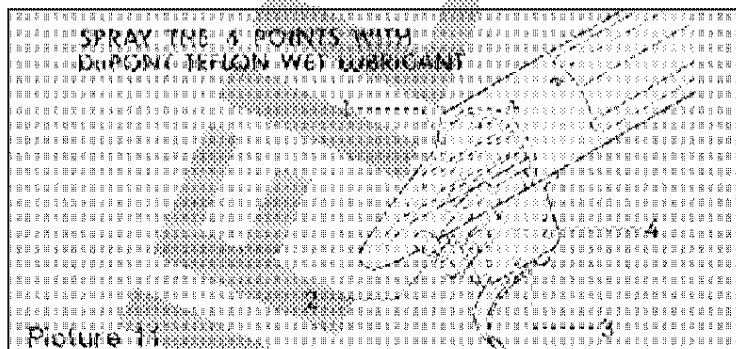 SPRAY THE 4 POINTS WITH
DuPONT TEFLON WET LUBRICANT
1
4
2
3
Picture 11